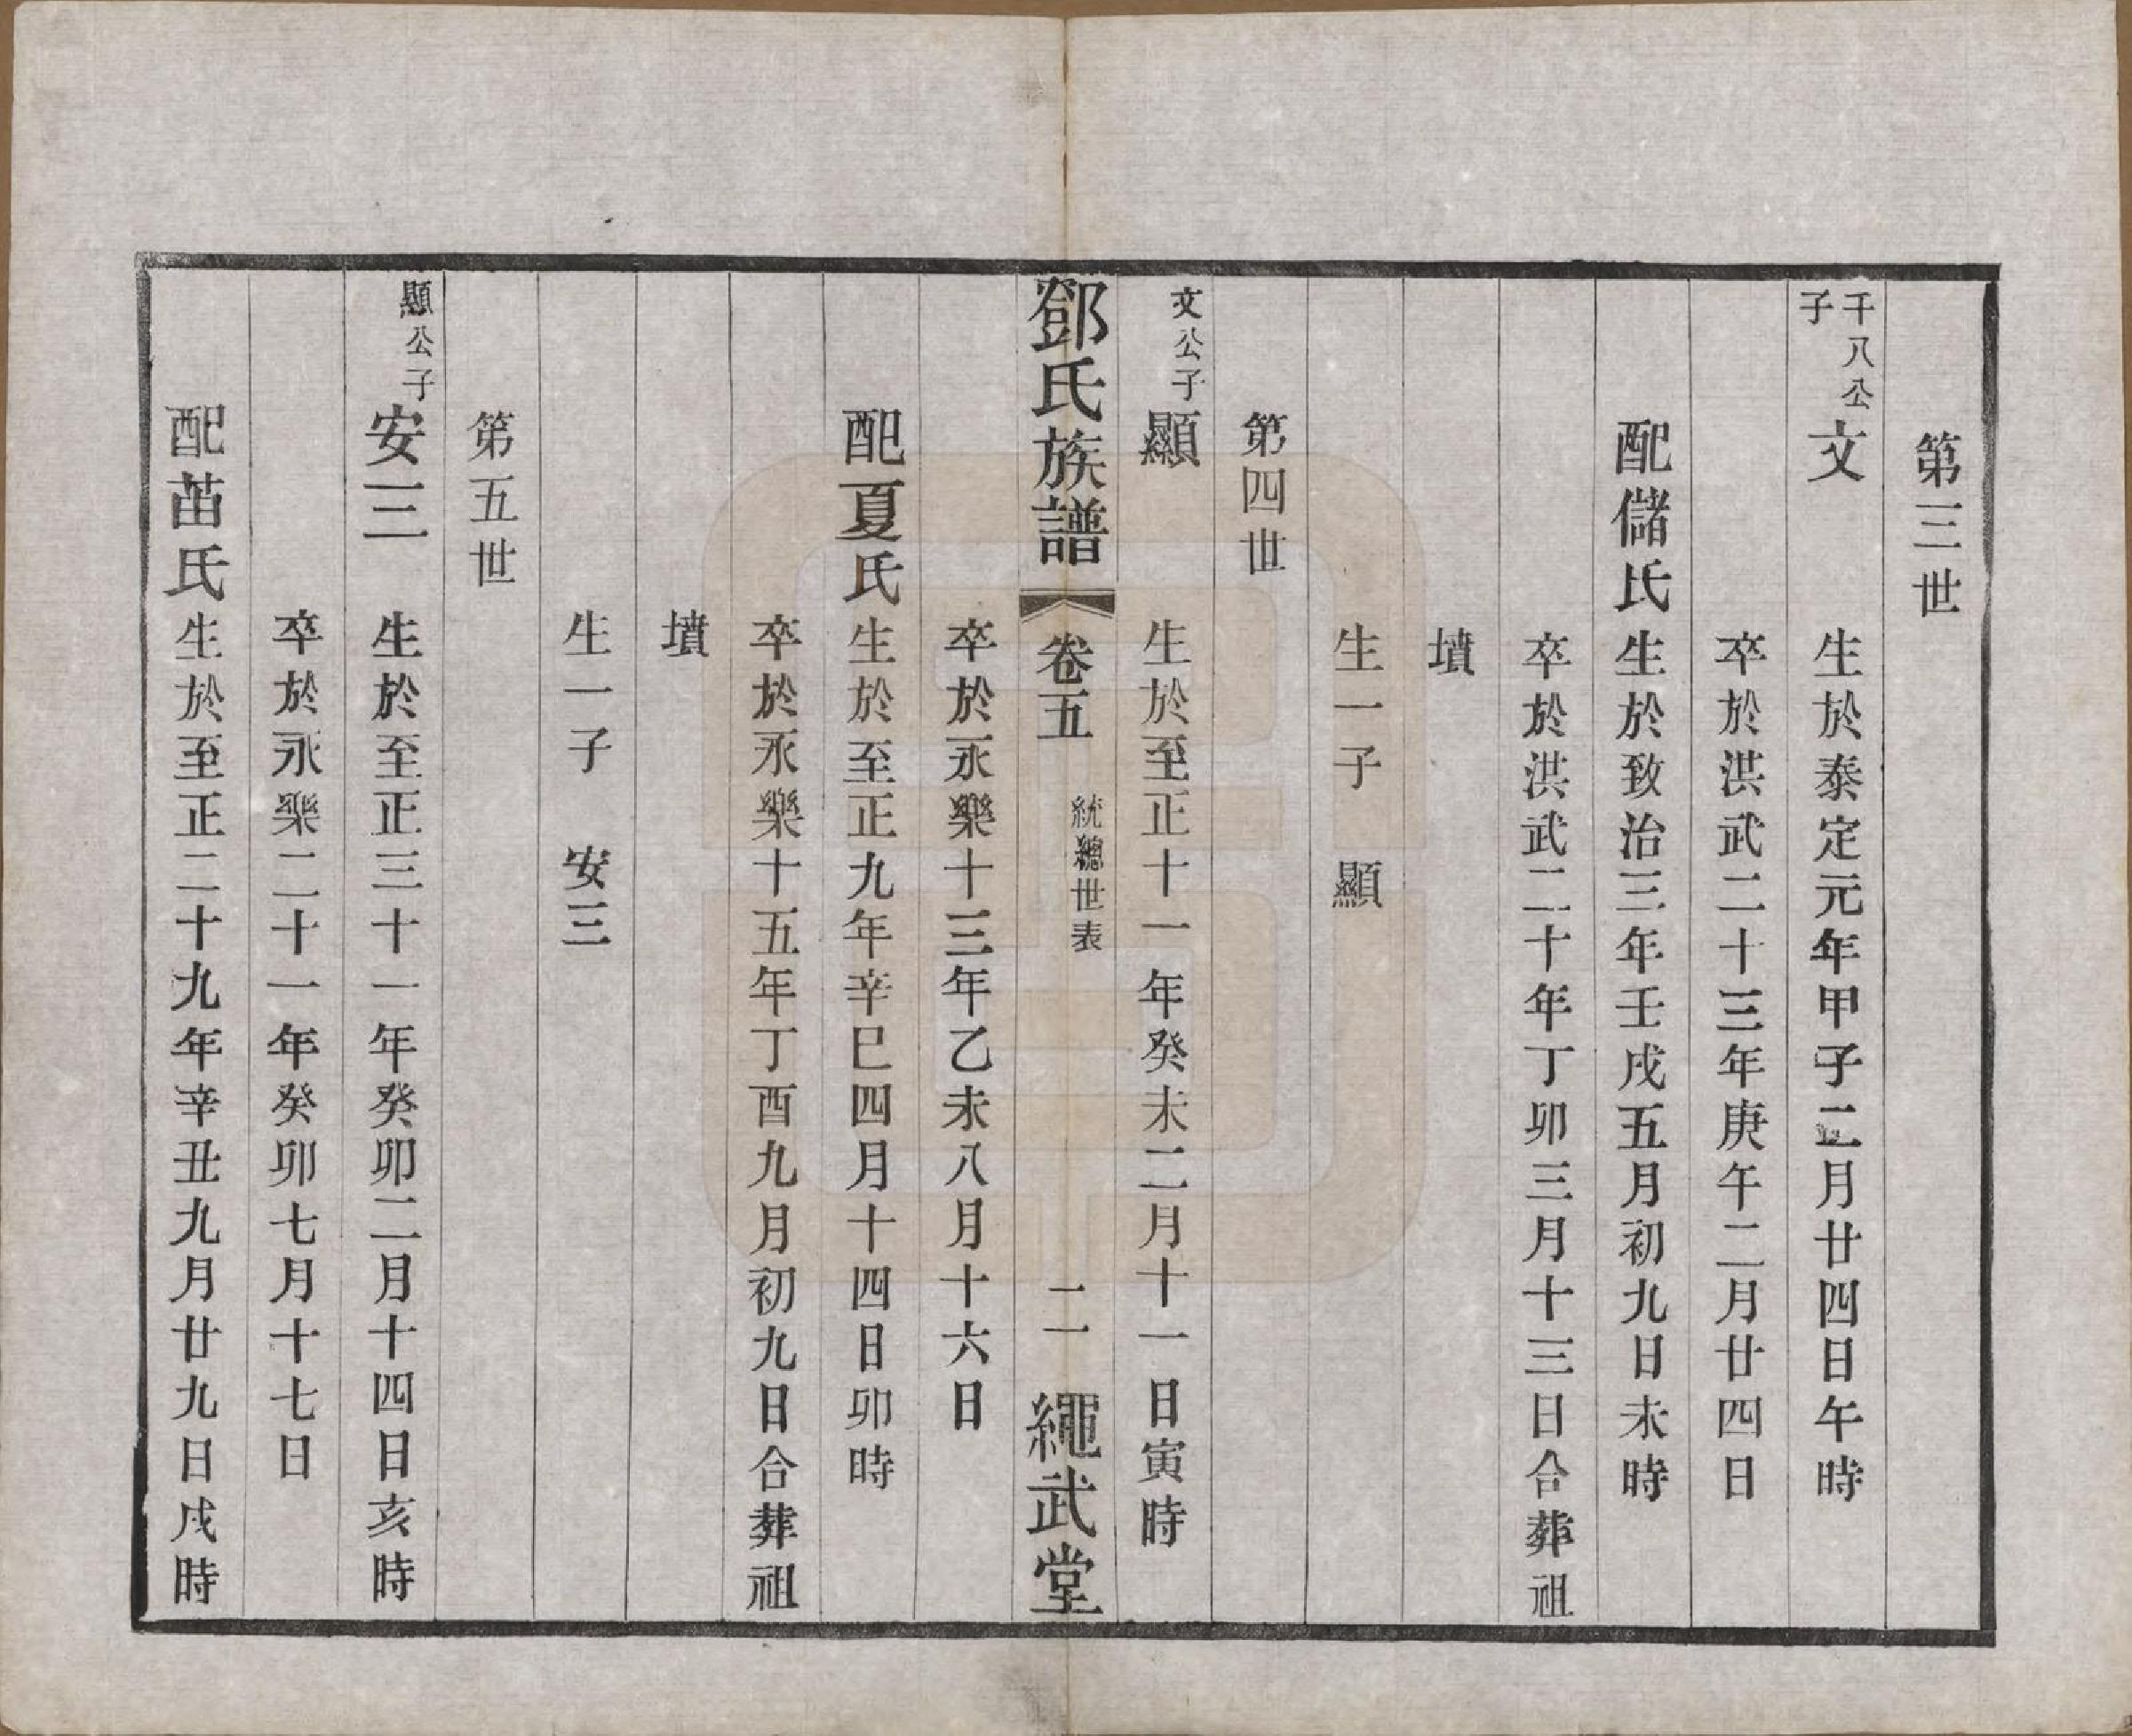 第三世
千八公子 文 生於泰定元年甲子二月廿四日午時
卒於洪武二十三年庚午二月廿四日
配儲氏 生於致治三年壬戌五月初九日未時
卒於洪武二十年丁卯三月十三日合葬祖
墳
生一子 顯
第四世
文公子 顯 生於至正十一年癸未二月十一日寅時
鄧氏族譜 卷五 統總世表 二 繩武堂
卒於永樂十三年乙未八月十六日
配夏氏 生於至正九年辛巳四月十四日卯時
卒於永樂十五年丁酉九月初九日合葬祖
墳
生一子 安三
第五世
顯公子 安三 生於至正三十一年癸卯二月十四日亥時
卒於永樂二十一年癸卯七月十七日
配苗氏 生於至正二十九年辛丑九月廿九日戌時